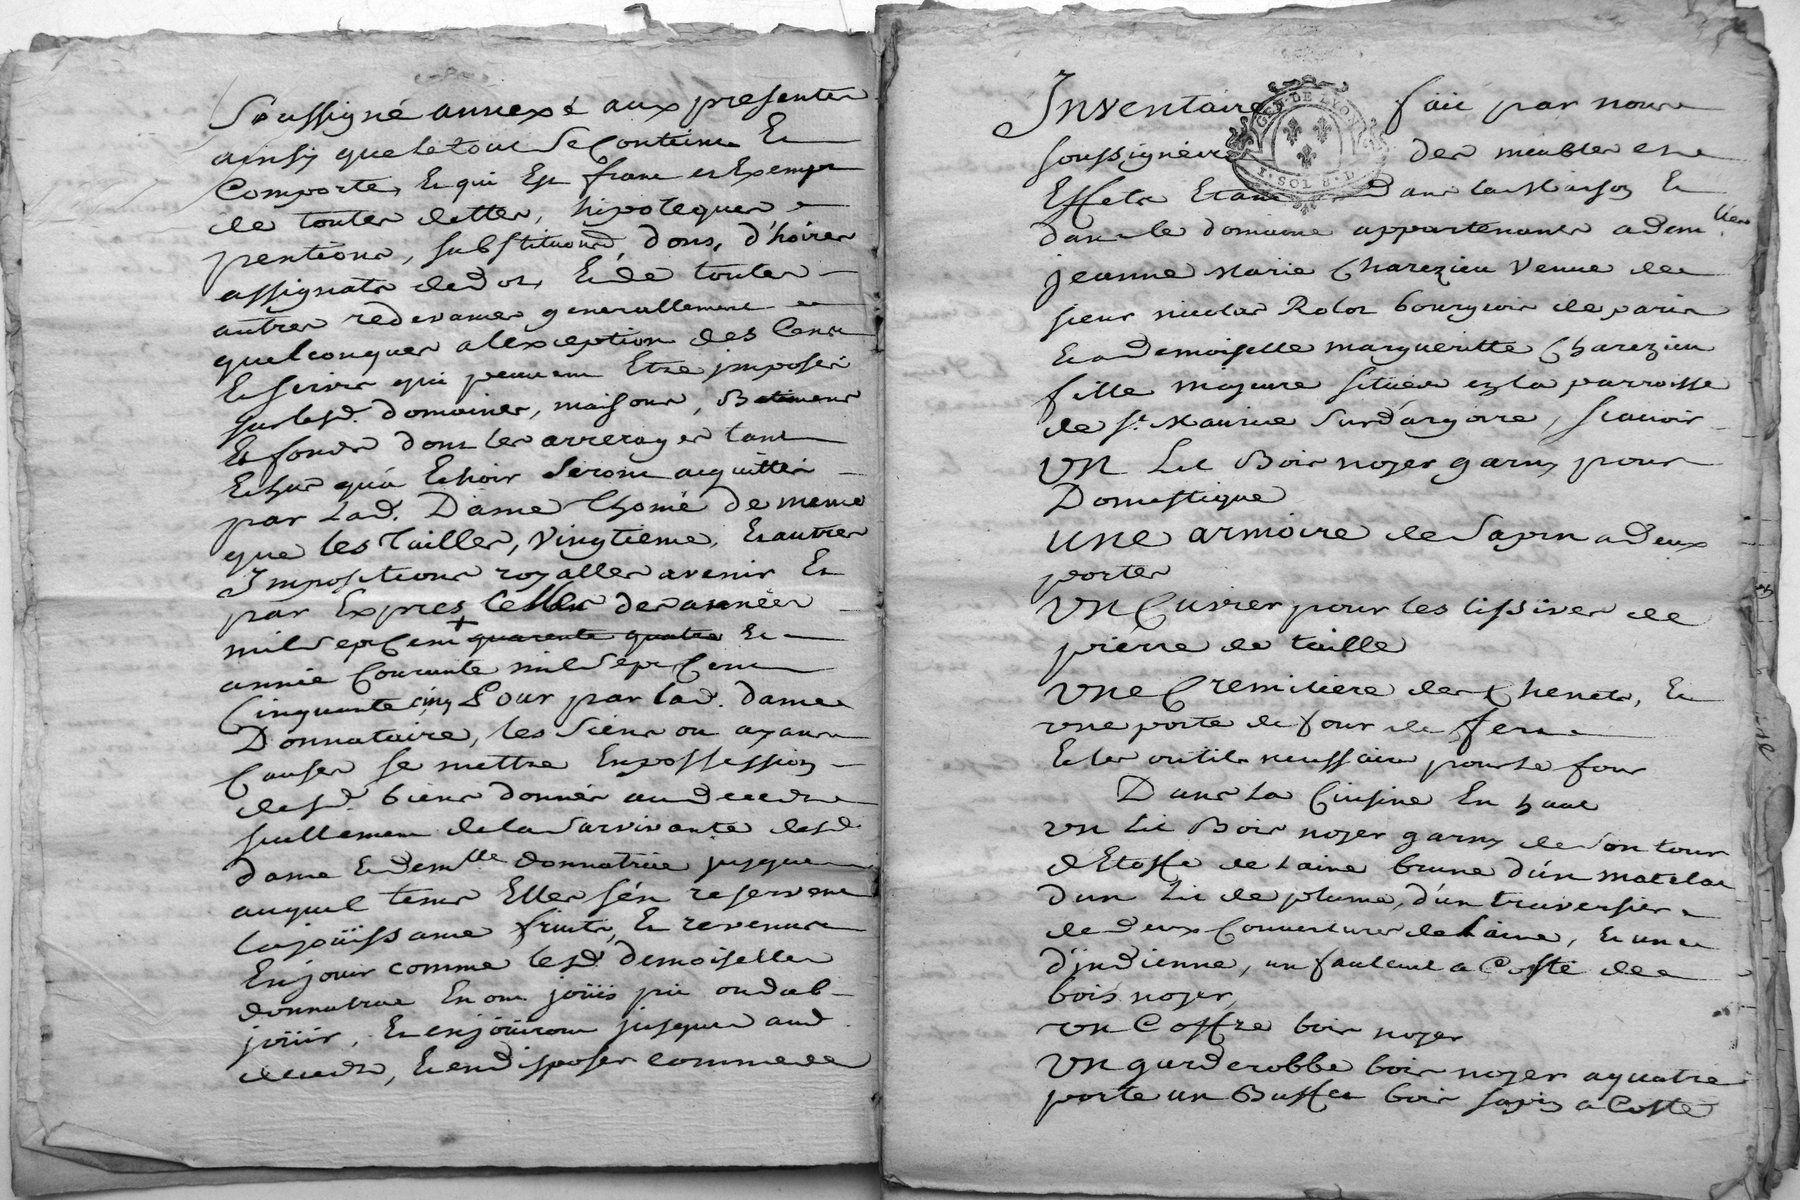 Soussigné annexé aux presentes
ainsy que le tout Se Contient Et
Comporte, Et qui Est franc et Exempt
de toutes dettes, hipoteques et
pentions, substitutions, dons, d'hoirs
assignats de dot, Et de toutes
autres redevances generallement
quelconques a lexception des Cens
Et servis qui peuvent Etre imposés
sur lesd. domaines, maisons, Batimens
Et fonds dont les arrerages tant
Echus qu'a Echoir Seront acquittés
par lad. Dame Thomé de meme
que les tailles, vingtieme, Et autres
Impositions royalles avenir Et
par Expres celles des années
mil Sept Cent quarente quatre Et
année Courante mil Sept Cent
Cinquante cinq Pour par lad. dame
Donnataire, les Siens ou ayans
Causes se mettre En possession
desd. biens donnés au decedz
seullement de la Survivante desd.
dame Et demlle donnatrice jusques
auquel tems Elles s'en reservent
la joüissance fruits, Et revenus
En jouir comme lesd. demoiselles
donnatrice En ont joüis pû ou dub
joüir, Et en joüiront jusques aud.
decedz, Et en disposer comme de
Inventaire fait par nous
soussignées des meubles et
Effets Etant dans la Maison Et
dans le domaine appartenants a dem
lles
jeanne Marie Charezieu Veuve de
sieur nicolas Rolot bourgeois de paris
Et a demoiselle margueritte Charezieu
fille majeure Situés en la parroisse
de St. Maurice Surd'argoire, sçavoir
UN Lit Bois noyer garny pour
Domestique
UNE armoire de Sapin a deux
portes
UN Cuvier pour les lissives de
pierre de taille
UNe Cremiliere des Chenets, Et
une porte de four de fer
Et les outils necessaire pour le four
Dans la Cuisine En haut
UN Lit Bois noyer garny de Son tour
d'Etoffe de Laine brune d'un matelas
d'un Lit de plume, d'un traversier
de deux Couvertures de Laine, Et une
d'indienne, un fauteuil a Costé de
bois noyer
UN Coffre bois noyer
UN garderobbe bois noyer a quatre
porte un Buffet bois sapin a Costé
GEN. DE LYON
I. SOL 8. D.